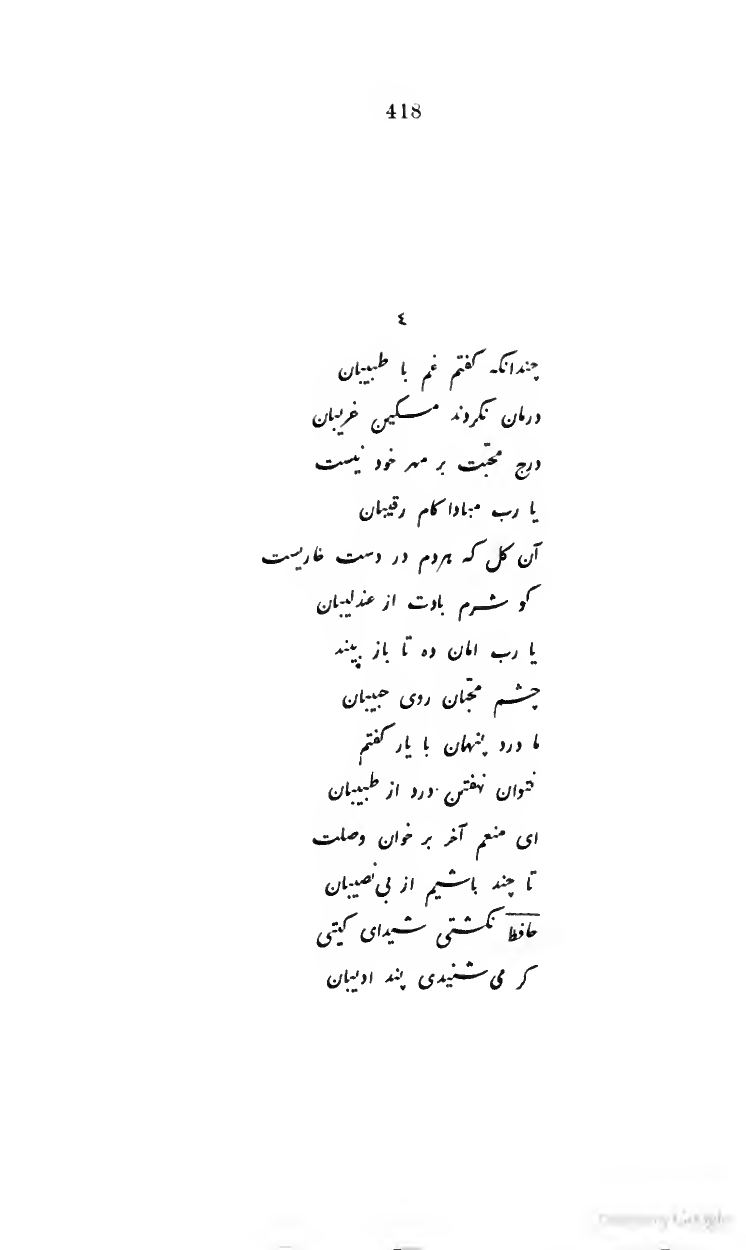 418
٤
چندانکه کفتم غم با طبیبان
درمان نکردند مسکین غریبان
درج محبّت بر مهر خود نیست
یا رب مبادا کام رقیبان
آن کل که هردم در دست خاریست
کو شرم بادت از عندلیبان
یا رب امان ده تا باز بیند
چشم محبّان روی حبیبان
ما درد پنهان با یار کفتم
نتوان نهفتن درد از طبیبان
ای منعم آخر بر خوان وصلت
تا چند باشیم از بی نصیبان
حافظ نکشتی شیدای کیتی
کر می شنیدی پند ادیبان
Google